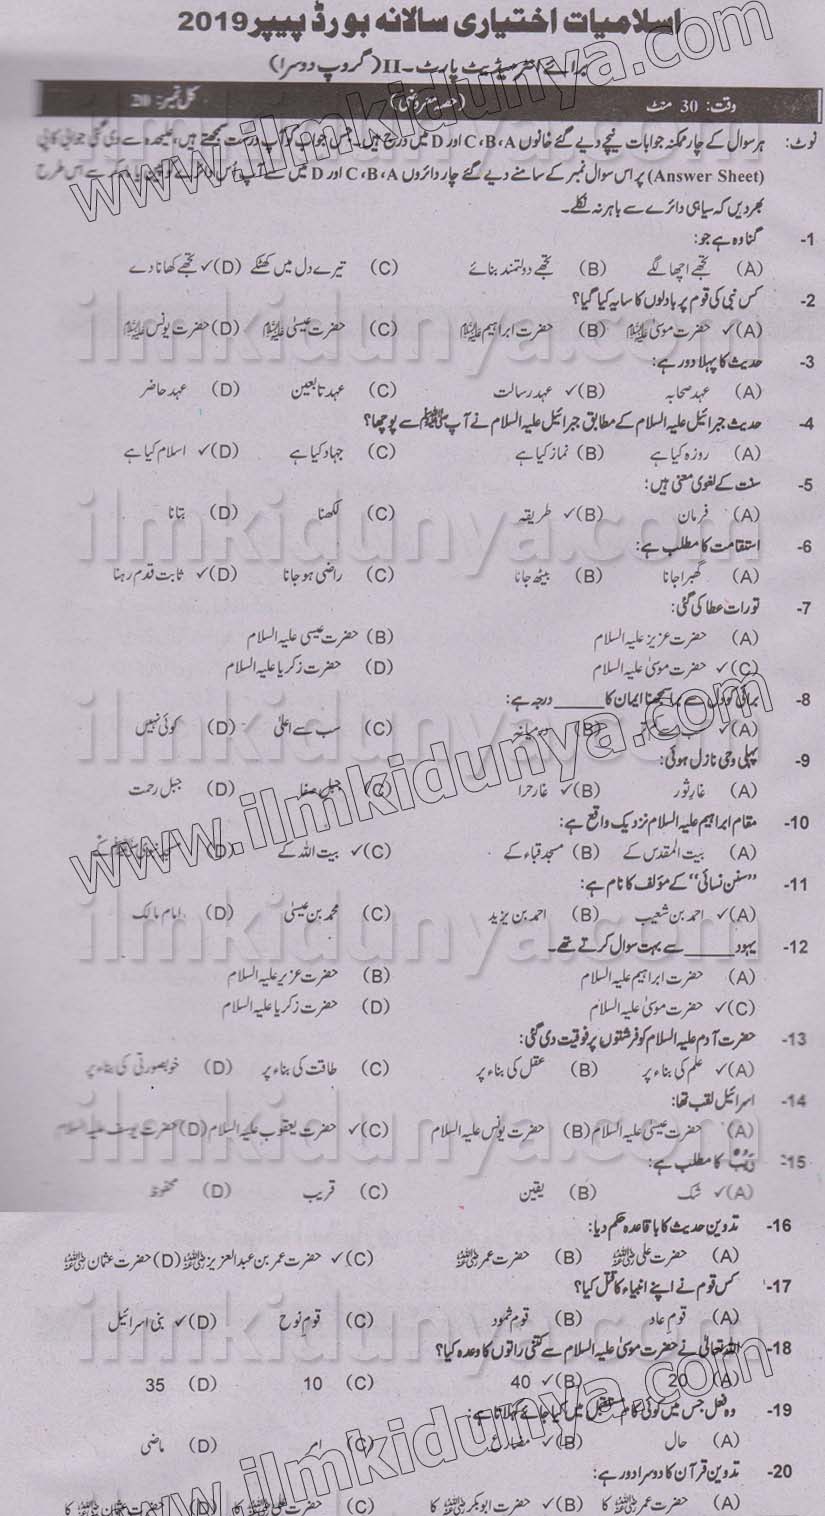 اسلامیات اختیاری سالانہ بورڈ پیپر 2019
برائے انٹرمیڈیٹ پارٹ - II (گروپ دوسرا)
وقت: 30 منٹ (حصہ معروضی) کل نمبر: 20
نوٹ: ہر سوال کے چار ممکنہ جوابات نیچے دیے گئے خانوں C، B، A اور D میں درج ہیں۔ جس جواب کو آپ درست سمجھتے ہیں، علیحدہ سے دی گئی جوابی کاپی
(Answer Sheet) پر اس سوال نمبر کے سامنے دیے گئے چار دائروں C، B، A اور D میں سے اس طرح
بھر دیں کہ سیاہی دائرے سے باہر نہ نکلے۔
-1 گناہ وہ ہے جو:
(A) تجھے اچھا لگے (B) تجھے دولتمند بنائے (C) تیرے دل میں کھٹکے ✓(D) تجھے کھانا دے
-2 کس نبی کی قوم پر بادلوں کا سایہ کیا گیا؟
✓(A) حضرت موسیٰ علیہ السلام (B) حضرت ابراہیم علیہ السلام (C) حضرت عیسیٰ علیہ السلام (D) حضرت یونس علیہ السلام
-3 حدیث کا پہلا دور ہے:
(A) عہد صحابہ ✓(B) عہد رسالت (C) عہد تابعین (D) عہد حاضر
-4 حدیث جبرائیل علیہ السلام کے مطابق جبرائیل علیہ السلام نے آپ ﷺ سے پوچھا؟
(A) روزہ کیا ہے (B) نماز کیا ہے (C) جہاد کیا ہے ✓(D) اسلام کیا ہے
-5 سنت کے لغوی معنی ہیں:
(A) فرمان ✓(B) طریقہ (C) لکھنا (D) بتانا
-6 استقامت کا مطلب ہے:
(A) گھبرا جانا (B) بیٹھ جانا (C) راضی ہو جانا ✓(D) ثابت قدم رہنا
-7 تورات عطا کی گئی:
(A) حضرت عزیر علیہ السلام (B) حضرت عیسیٰ علیہ السلام
✓(C) حضرت موسیٰ علیہ السلام (D) حضرت زکریا علیہ السلام
-8 برائی کو دل سے برا سمجھنا ایمان کا _____ درجہ ہے:
✓(A) سب سے (B) درمیانہ (C) سب سے اعلیٰ (D) کوئی نہیں
-9 پہلی وحی نازل ہوئی:
(A) غار ثور ✓(B) غار حرا (C) جبل صفا (D) جبل رحمت
-10 مقام ابراہیم علیہ السلام نزدیک واقع ہے:
(A) بیت المقدس کے (B) مسجد قباء کے ✓(C) بیت اللہ کے (D) مسجد نبوی ﷺ کے
-11 "سنن نسائی" کے مؤلف کا نام ہے:
✓(A) احمد بن شعیب (B) احمد بن یزید (C) محمد بن عیسیٰ (D) امام مالک
-12 یہود _____ سے بہت سوال کرتے تھے۔
(A) حضرت ابراہیم علیہ السلام (B) حضرت عزیر علیہ السلام
✓(C) حضرت موسیٰ علیہ السلام (D) حضرت زکریا علیہ السلام
-13 حضرت آدم علیہ السلام کو فرشتوں پر فوقیت دی گئی:
✓(A) علم کی بناء پر (B) عقل کی بناء پر (C) طاقت کی بناء پر (D) خوبصورتی کی بناء پر
-14 اسرائیل لقب تھا:
(A) حضرت عیسیٰ علیہ السلام (B) حضرت یونس علیہ السلام ✓(C) حضرت یعقوب علیہ السلام (D) حضرت یوسف علیہ السلام
-15 رَیْبٌ کا مطلب ہے:
✓(A) شک (B) یقین (C) قریب (D) محفوظ
-16 تدوین حدیث کا باقاعدہ حکم دیا:
(A) حضرت علی رضی اللہ عنہ (B) حضرت عمر رضی اللہ عنہ ✓(C) حضرت عمر بن عبدالعزیز رضی اللہ عنہ (D) حضرت عثمان رضی اللہ عنہ
-17 کس قوم نے اپنے انبیاء کا قتل کیا؟
(A) قوم عاد (B) قوم ثمود (C) قوم نوح ✓(D) بنی اسرائیل
-18 اللہ تعالیٰ نے حضرت موسیٰ علیہ السلام سے کتنی راتوں کا وعدہ کیا؟
(A) 20 ✓(B) 40 (C) 10 (D) 35
-19 وہ فعل جس میں کوئی کام مستقبل میں کیا جائے کہلاتا ہے:
(A) حال ✓(B) مضارع (C) امر (D) ماضی
-20 تدوین قرآن کا دوسرا دور ہے:
(A) حضرت عمر رضی اللہ عنہ کا ✓(B) حضرت ابوبکر رضی اللہ عنہ کا (C) حضرت علی رضی اللہ عنہ کا (D) حضرت عثمان رضی اللہ عنہ کا
www.ilmkidunya.com
ilmkidunya.com
ilmkidunya.com
www.ilmkidunya.com
ilmkidunya.com
ilmkidunya.com
ilmkidunya.com
ilmkidunya.com
www.ilmkidunya.com